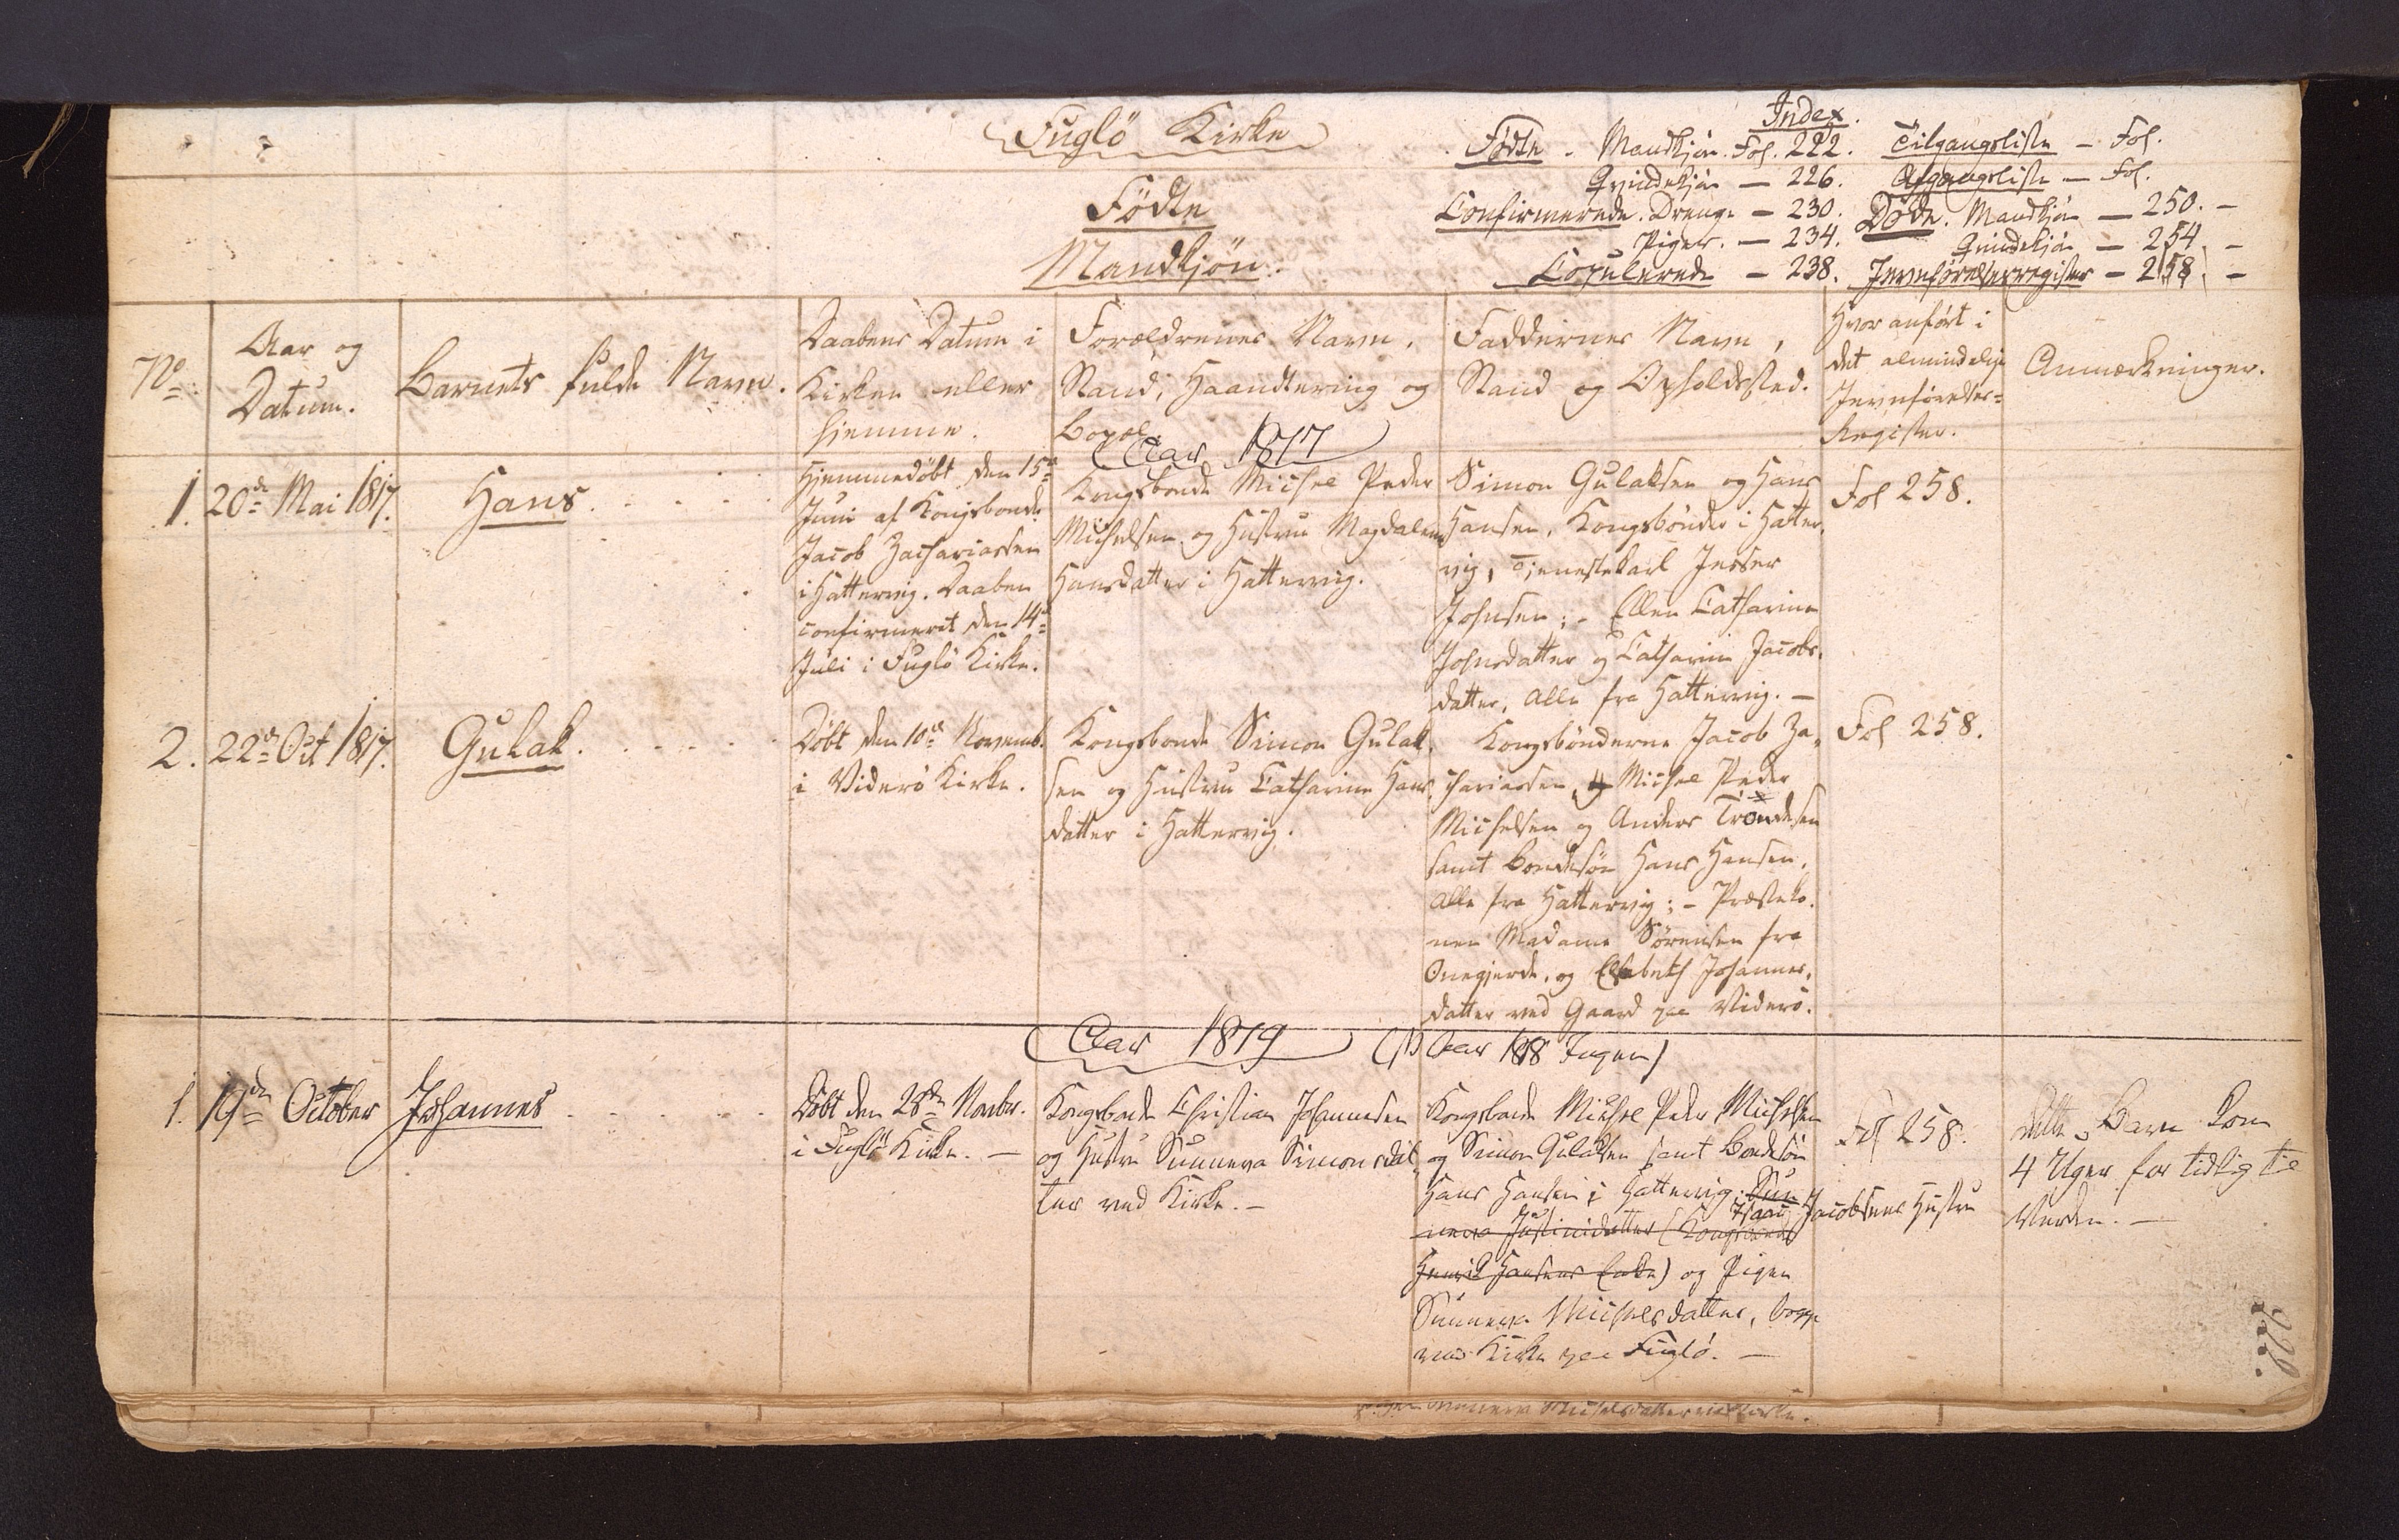 Fuglö Kirke
Index.
Födte. Mandkjön. Fol. 222.
Qvindekjön — 226.
Confirmerede. Drenge — 230.
Piger. — 234.
Copulerede — 238.
Tilgangsliste — Fol.
Afgangsliste — Fol.
Döde. Mandkjön — 250. —
Qvindekjön — 254. —
Jevnförelsesregister — 258. —
Födte
Mandkjön.
No.
Aar og
Datum.
Barnets fulde Navn.
Daabens Datum i
Kirken eller
hjemme.
Forældrenes Navn,
Stand, Haandtering og
Bopæl.
Faddernes Navn,
Stand og Opholdssted.
Hvor anfört i
det almindelige
Jevnförelses=
Register.
Anmærkninger.
Aar 1817
1.
20de Mai 1817.
Hans.
Hjemmedöbt den 15de
Juni af Kongsbonde
Jacob Zachariassen
i Hattervig. Daaben
confirmeret den 14de
Juli i Fuglö Kirke.
Kongsbonde Michel Peder
Michelsen og Hustru Magdalene
Hansdatter i Hattervig.
Simon Gulaksen og Hans
Hansen, Kongsbönder i Hatter,
vig, Tjenestekarl Jesser
Johnsen; - Ellen Catharine
Johnsdatter og Catharine Jacobs,
datter, alle fra Hattervig. —
Fol 258.
2.
22de Oct 1817.
Gulak.
Döbt den 10de Novemb.
i Viderö Kirke.
Kongsbonde Simon Gulak,
sen og Hustru Catharine Hans,
datter i Hattervig.
Kongsbönderne Jacob Za,
chariassen, og Michel Peder
Michelsen og Anders Tröndesen
samt Bondesön Hans Hansen,
alle fra Hattervig; - Præsteko,
nen Madame Sörensen fra
Onegjerde, og Elsebeth Johannes,
datter ved Gaard paa Viderö.
Fol 258.
Aar 1819
(I Aar 1818 Ingen)
1.
19de October
Johannes
Döbt den 28de Novbr.
i Fuglö Kirke. —
Kongsbonde Christian Johannesen
og Hustru Sunneva Simonsdat,
ter ved Kirke. —
Kongsbonde Michel Peder Michelsen
og Simon Gulaksen samt Bondesön
Hans Hansen i Hattervig; Sun
Isaac Jacobsens Hustru
neva Justinidatter (Kongsbonde
Henrik Hansens Enke) og Pigen
Sunneva Michelsdatter, begge
ved Kirke paa Fuglö. —
Fol 258.
dette Barn kom
4 Uger for tidlig til
Verden. —
222.
Sunneva Michelsdatter ved Kirke.